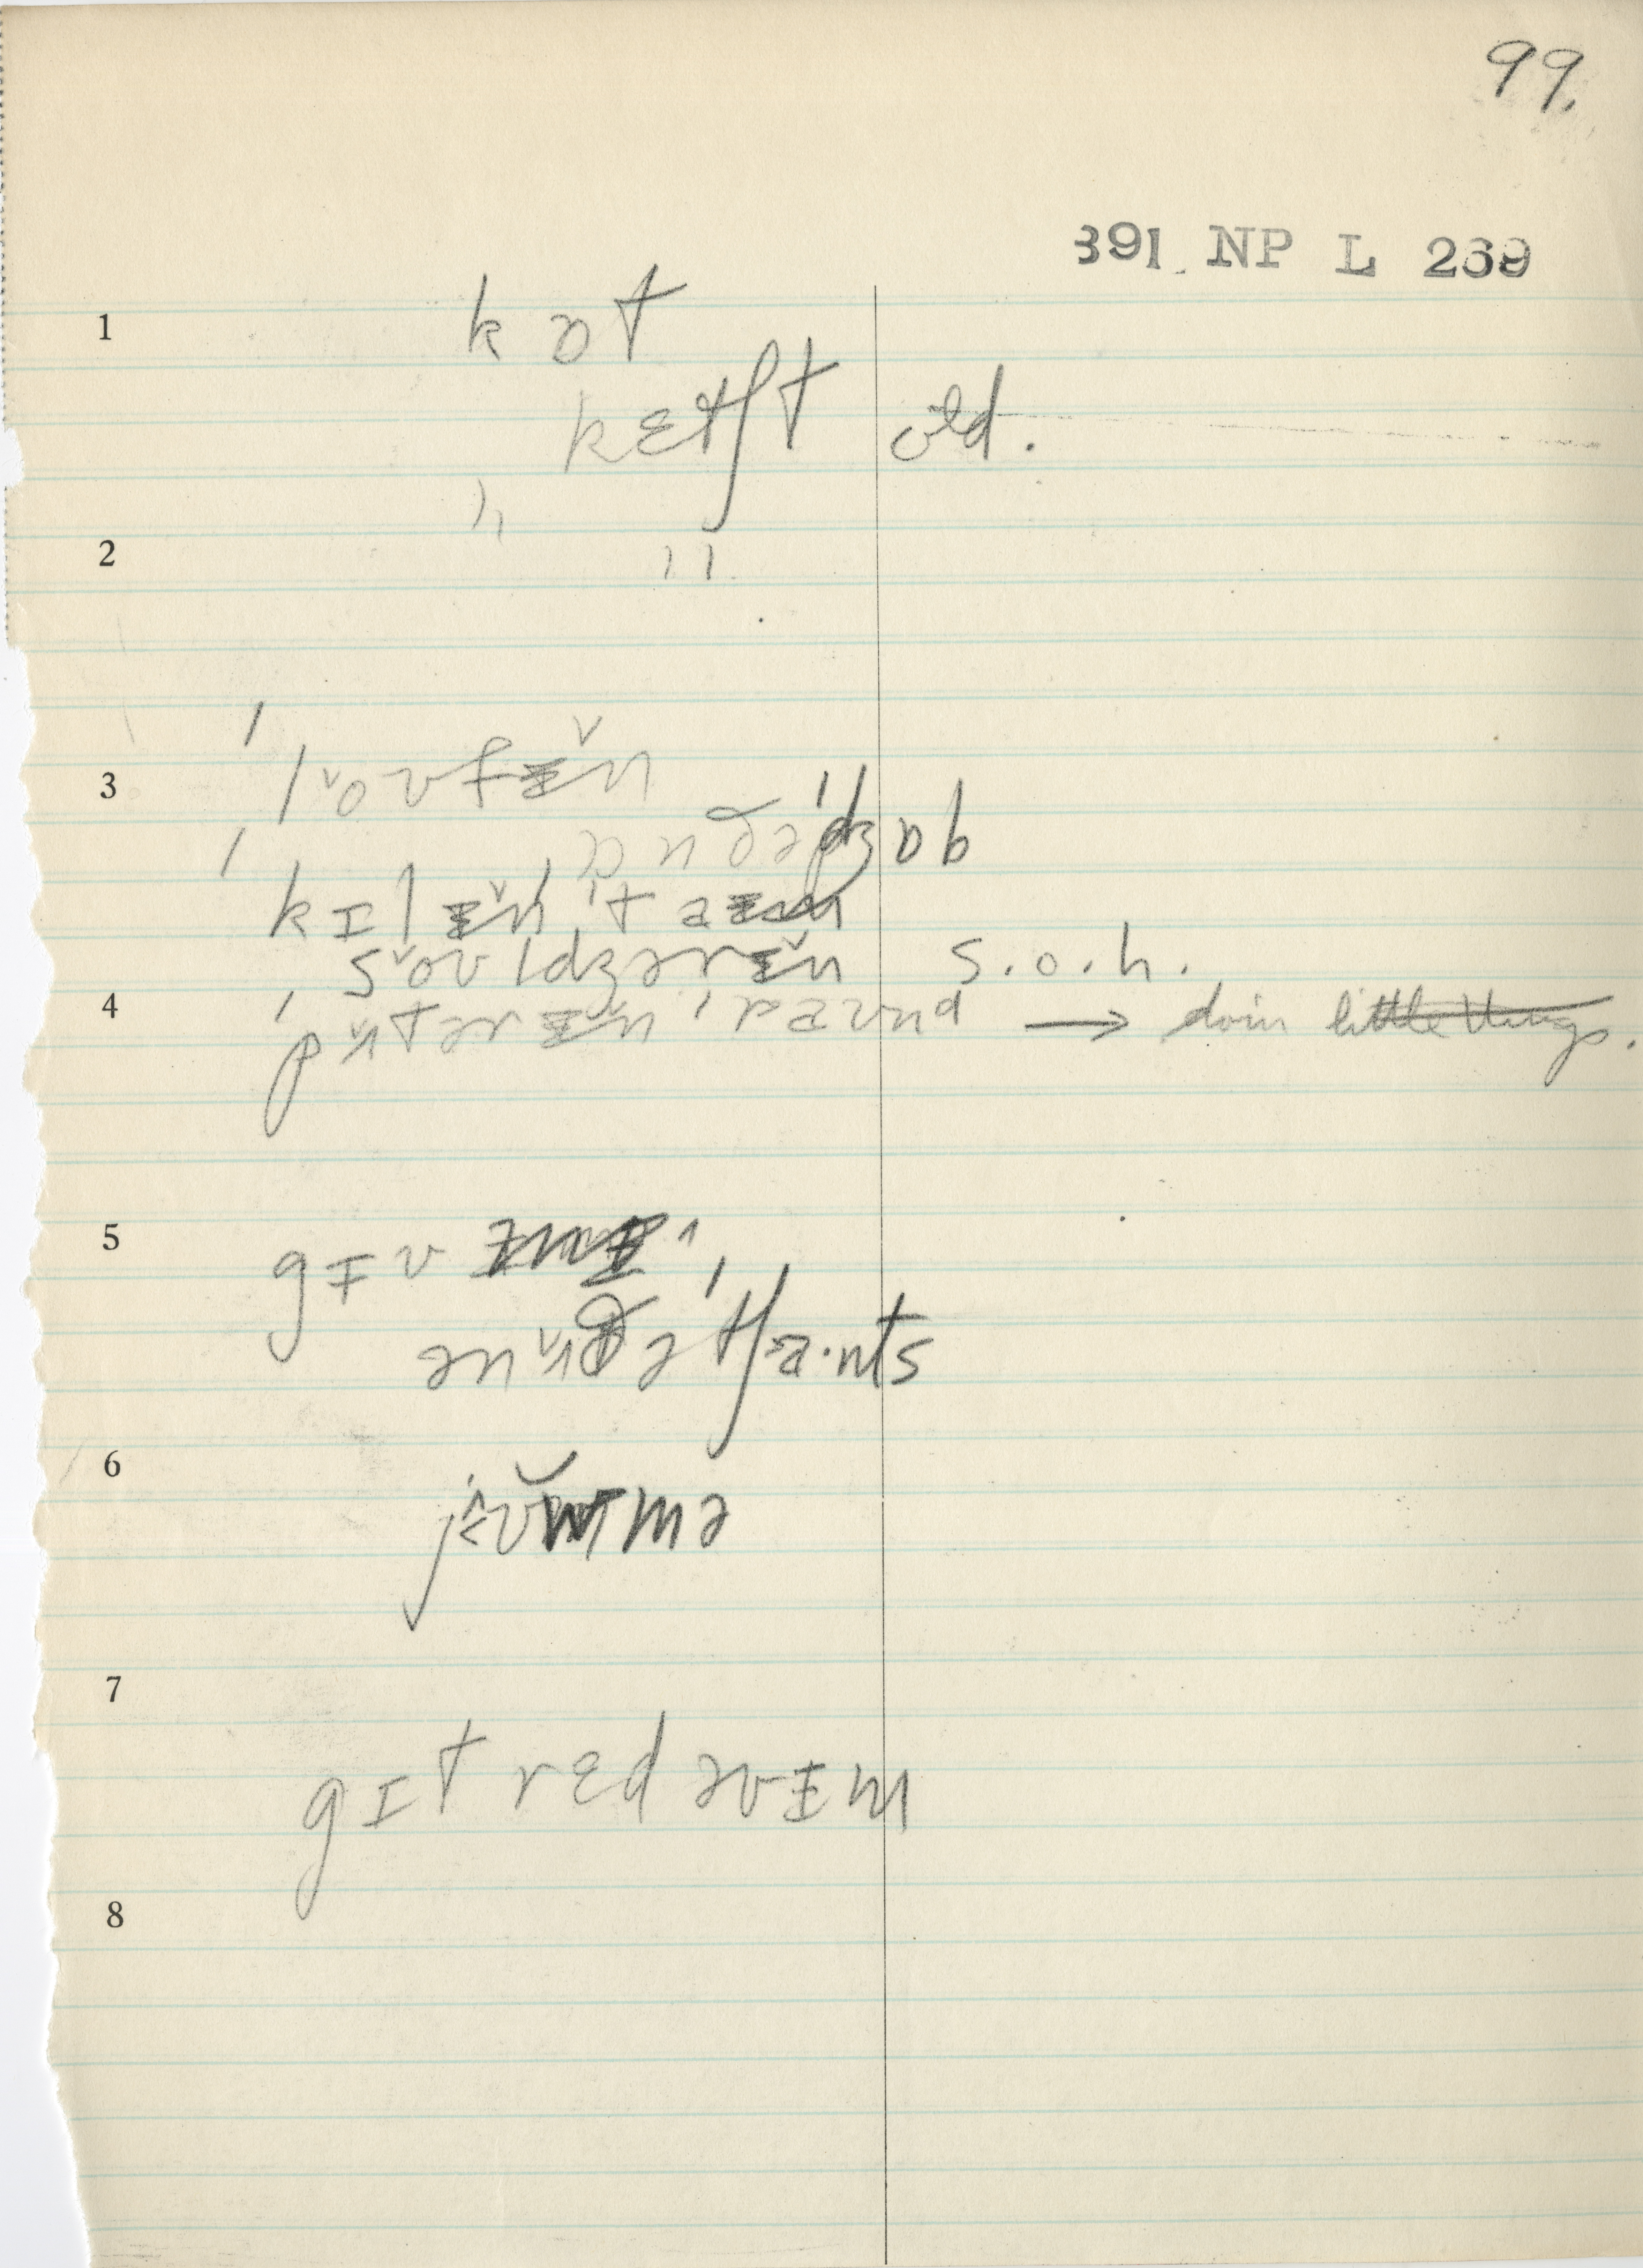 99.
391 NP L 269
1
kɒt
kɛtʃt old.
2
" "
3
ˈloʊfɨ̆n
ɒn ðəˈdʒɒb
ˈkɪlɨ̆nˈtaɪm
soʊldʒərɨ̆n s.o.h.
4
ˈpʌtərɨ̆nˈraʊnd → doin little things.
5
gɪv
ən ʌðəˈtʃa·nts
6
7
gɪt rɛd əvɨm
8